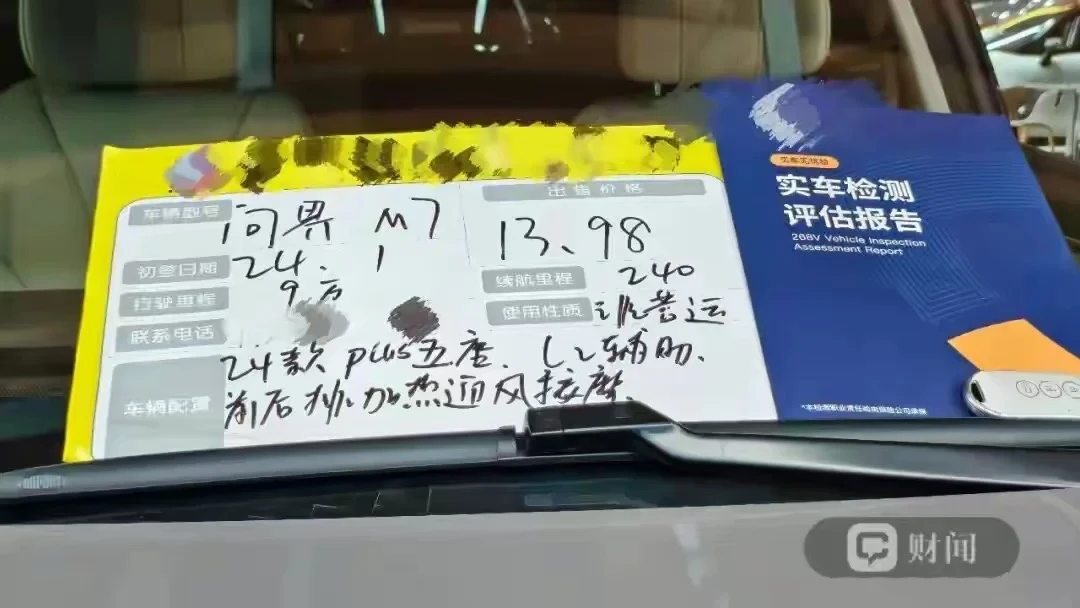 车辆型号 问界 M7
出售价格
13.98
初登日期 24.1
续航里程 240
行驶里程 9万
使用性质 非营运
联系电话
车辆配置 24款 plus五座、L2辅助、
前后排加热通风按摩.
实车检测
评估报告
268V Vehicle Inspection
Assessment Report
财闻